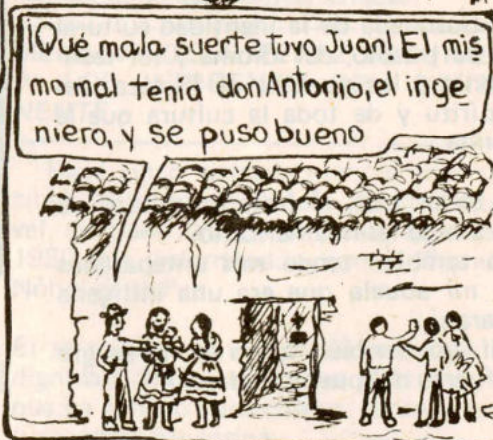 ¡Qué mala suerte tuvo Juan! El mis
mo mal tenía don Antonio, el inge
niero, y se puso bueno